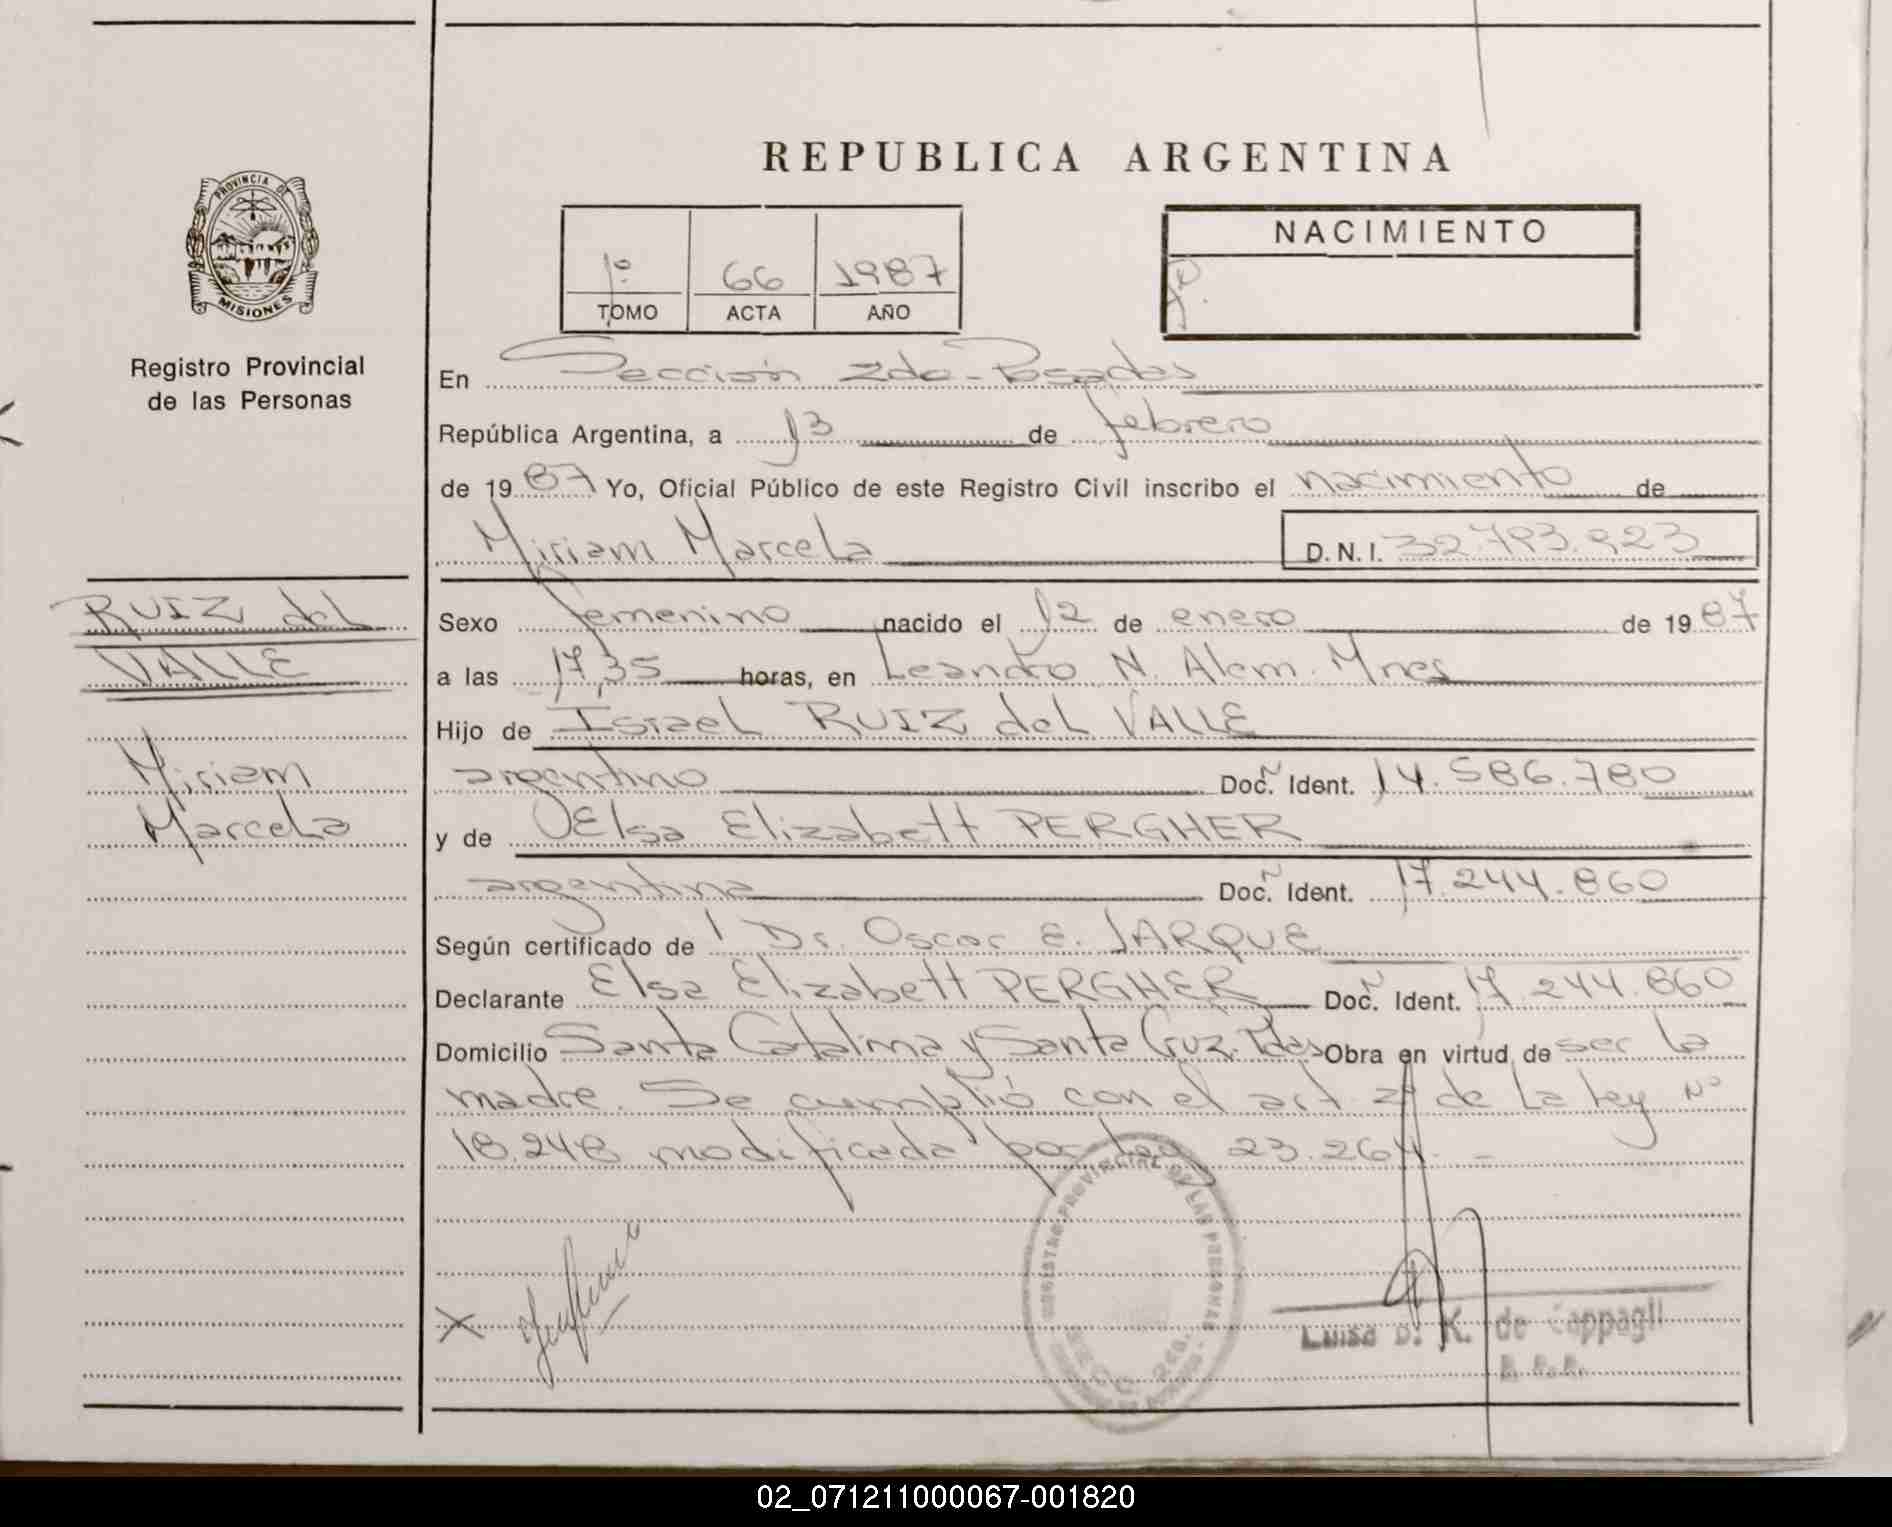 REPUBLICA ARGENTINA
PROVINCIA DE
MISIONES
Registro Provincial
de las Personas
1º 66 1987
TOMO ACTA AÑO
NACIMIENTO
En Sección 2da-Posadas
República Argentina, a 13 de febrero
de 1987 Yo, Oficial Público de este Registro Civil inscribo el nacimiento de
Miriam Marcela D.N.I. 32.793.923
RUIZ del
VALLE
Miriam
Marcela
Sexo femenino nacido el 12 de enero de 1987
a las 17,35 horas, en Leandro N. Alem. Mnes
Hijo de Israel RUIZ del VALLE
argentino Doc. Ident. 14.586.780
y de Elsa Elizabett PERGHER
argentina Doc. Ident. 17.244.860
Según certificado de Dr. Oscar E. JARQUE
Declarante Elsa Elizabett PERGHER Doc. Ident. 17.244.860
Domicilio Santa Catalina y Santa Cruz. Pdas Obra en virtud de ser la
madre. Se cumplió con el art. 2º de la ley Nº
18.248 modificada por ley 23.264. -
REGISTRO PROVINCIAL DE LAS PERSONAS
Luisa D. K. de Cappagli
02_071211000067-001820